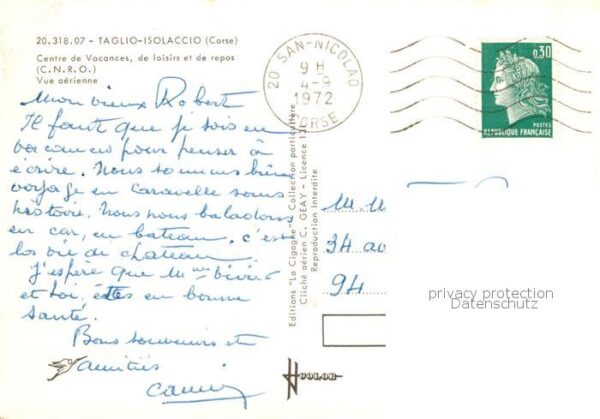 20.318.07 - TAGLIO-ISOLACCIO (Corse)
Centre de Vacances, de loisirs et de repos
(C.N.R.O.)
Vue aérienne
20 SAN-NICOLAO
9 H
4-9
1972
CORSE
0,30
POSTES
REPUBLIQUE FRANÇAISE
Mon vieux Robert
Il faut que je sois en
vacances pour penser à
écrire. Nous sommes bien
voyage en caravelle sans
histoire. Nous nous baladons
en car, en bateau, c'est
la vie de chateau.
J'espère que Mme
et toi, êtes en bonne
santé.
Bons souvenirs et
amitiés
Editions "La Cigogne" Collection particulière
Cliché aérien C. GEAY - Licence 13
Reproduction Interdite
M. M
34 av
94
privacy protection
Datenschutz